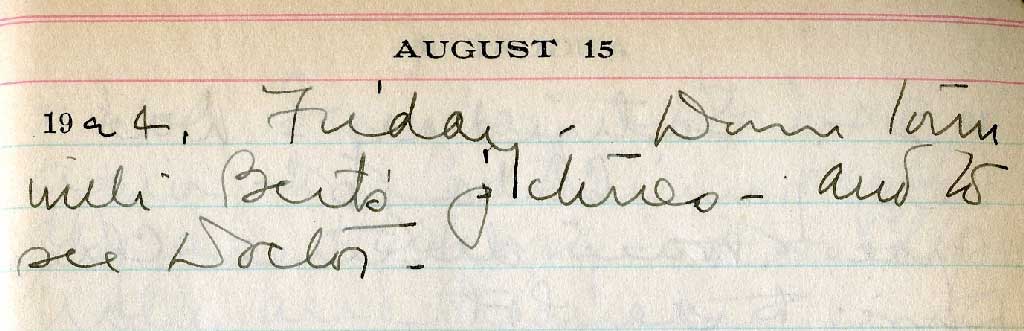 AUGUST 15
1924, Friday - Down Town
with Bert's pictures - and to
see Doctor -